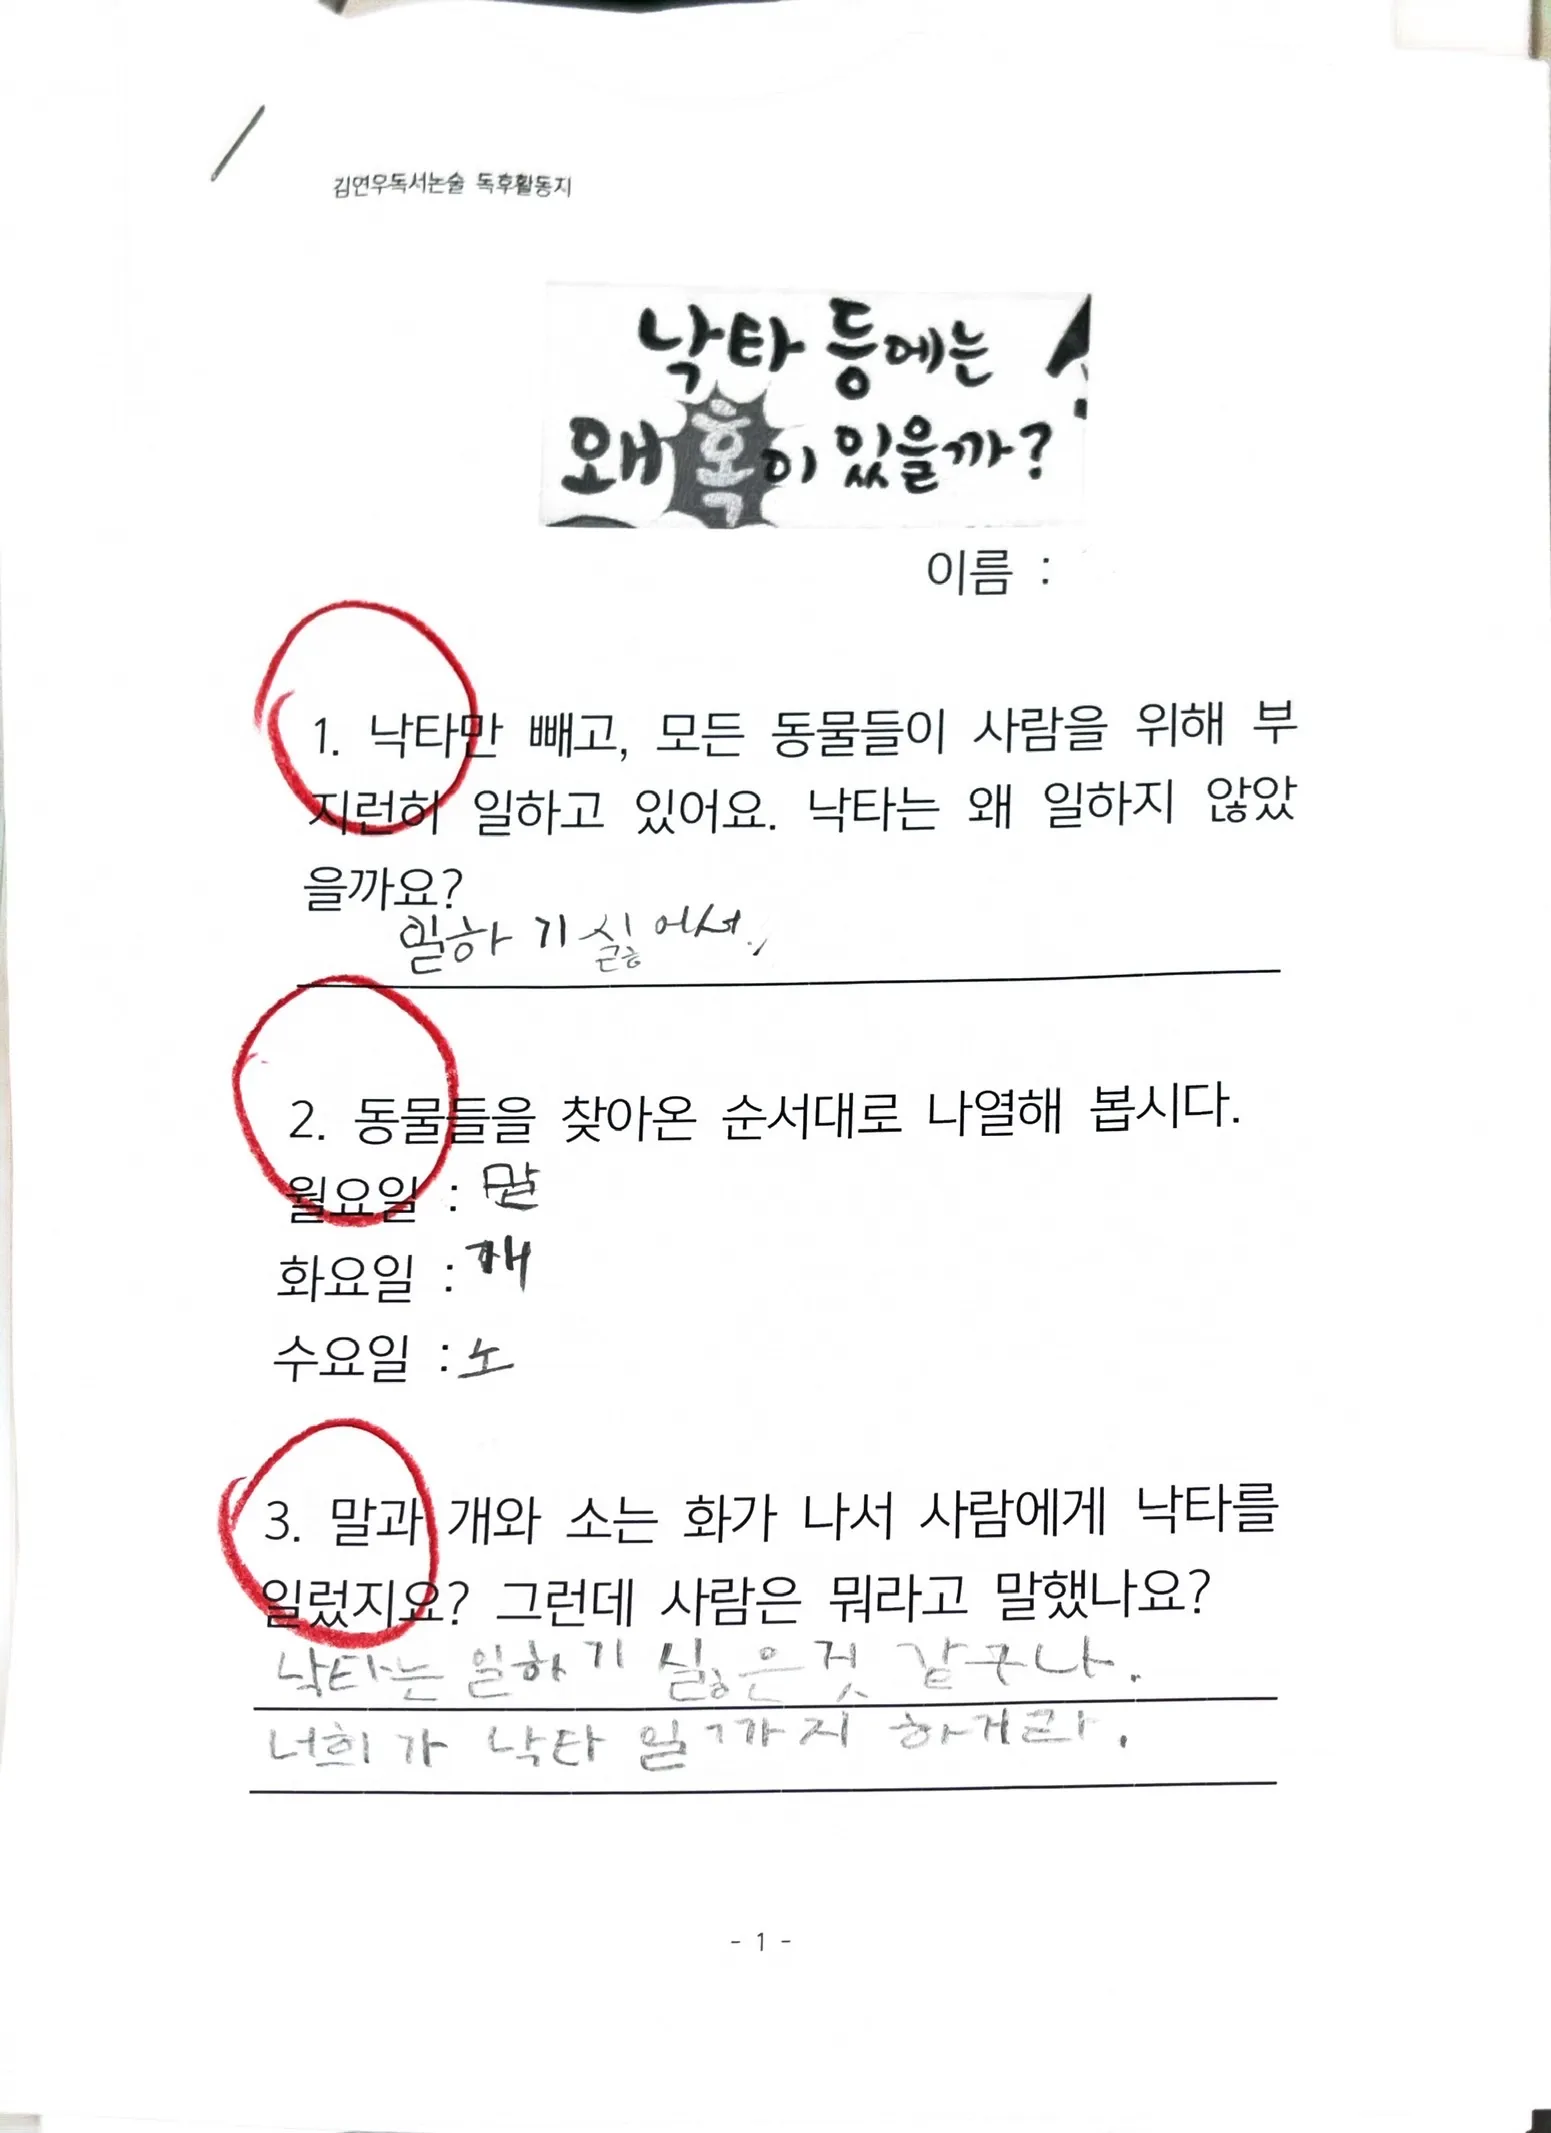 김연우독서논술 독후활동지
낙타 등에는
왜 혹이 있을까?
이름 :
1. 낙타만 빼고, 모든 동물들이 사람을 위해 부
지런히 일하고 있어요. 낙타는 왜 일하지 않았
을까요?
일하기 싫어서.
2. 동물들을 찾아온 순서대로 나열해 봅시다.
월요일 : 말
화요일 : 개
수요일 : 소
3. 말과 개와 소는 화가 나서 사람에게 낙타를
일렀지요? 그런데 사람은 뭐라고 말했나요?
낙타는 일하기 싫은것 같구나.
너희가 낙타 일까지 하거라.
- 1 -